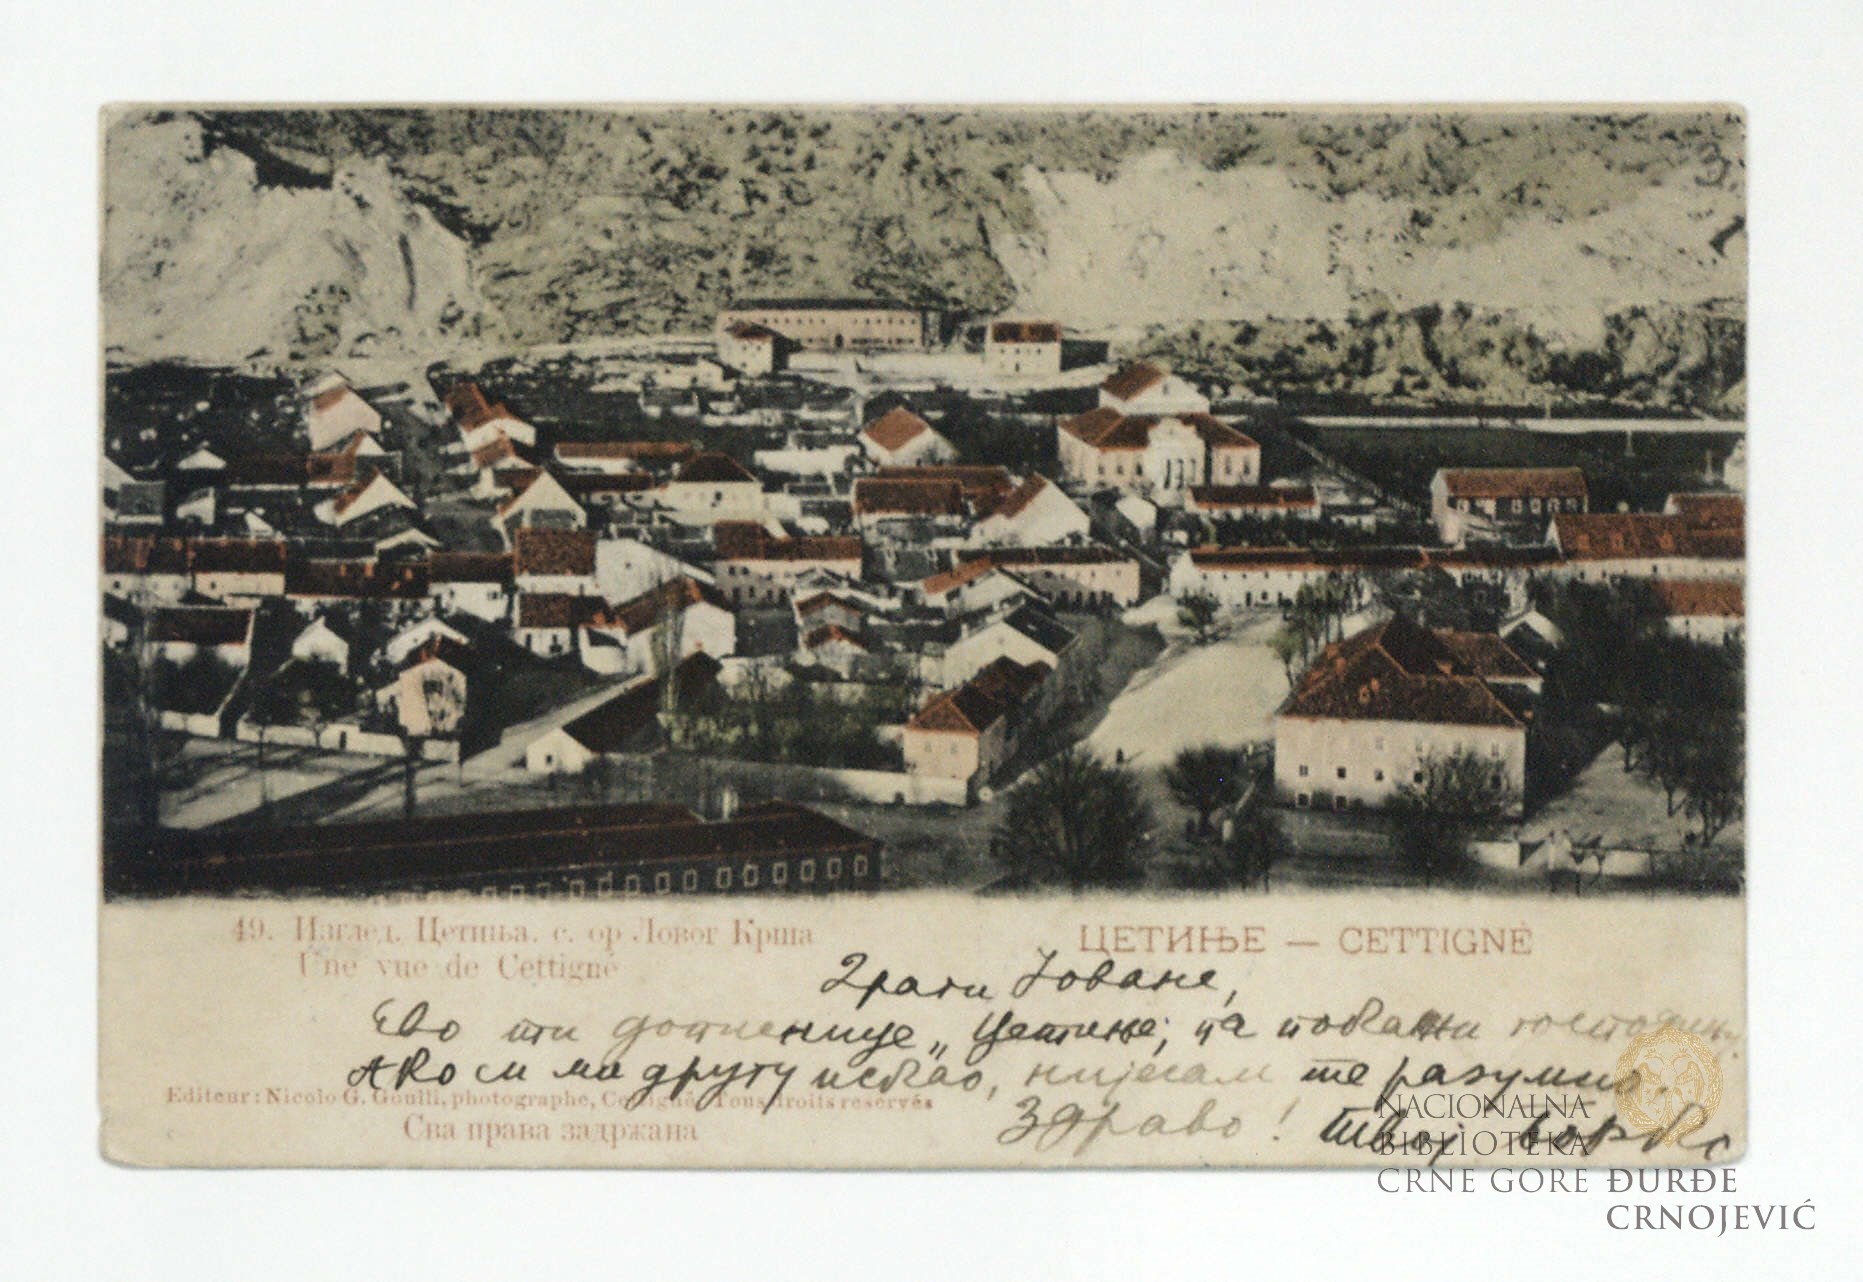 49. Изглед. Цетиња. с. ор Ловог Крша
Une vue de Cettigné
ЦЕТИЊЕ — CETTIGNÉ
Драги Јоване,
Ево ти дописнице „Цетиње, па покажи
Ако си ми другу искао, нијесам те разумио.
Здраво! твој
Editeur: Nicolo G. Goulli, photographe, Cettigné. Tous droits reservés
Сва права задржана
NACIONALNA
BIBLIOTEKA
CRNE GORE ĐURĐE
CRNOJEVIĆ